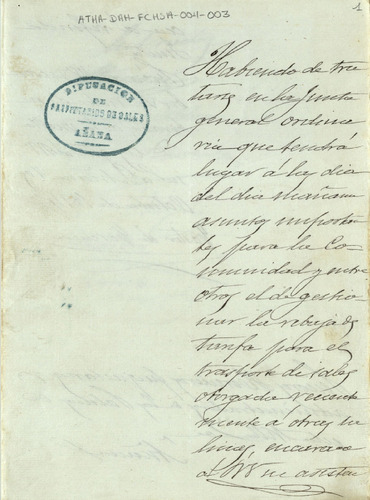 ATHA-DAH-FCHSA-004-003
1
DIPUTACION
DE
PROPIETARIOS DE SALES
AÑANA
Habiendo de tra
tarse en la Junta
general ordina
ria que tendrá
lugar á las dies
del dia mañana
asuntos importan
tes para la Co
munidad y entre
otros el de gestio
nar la rebaja de
tarifa para el
trasporte de sales
otorgada reciente
mente á otras sa
linas, encarezco
á V. no asista